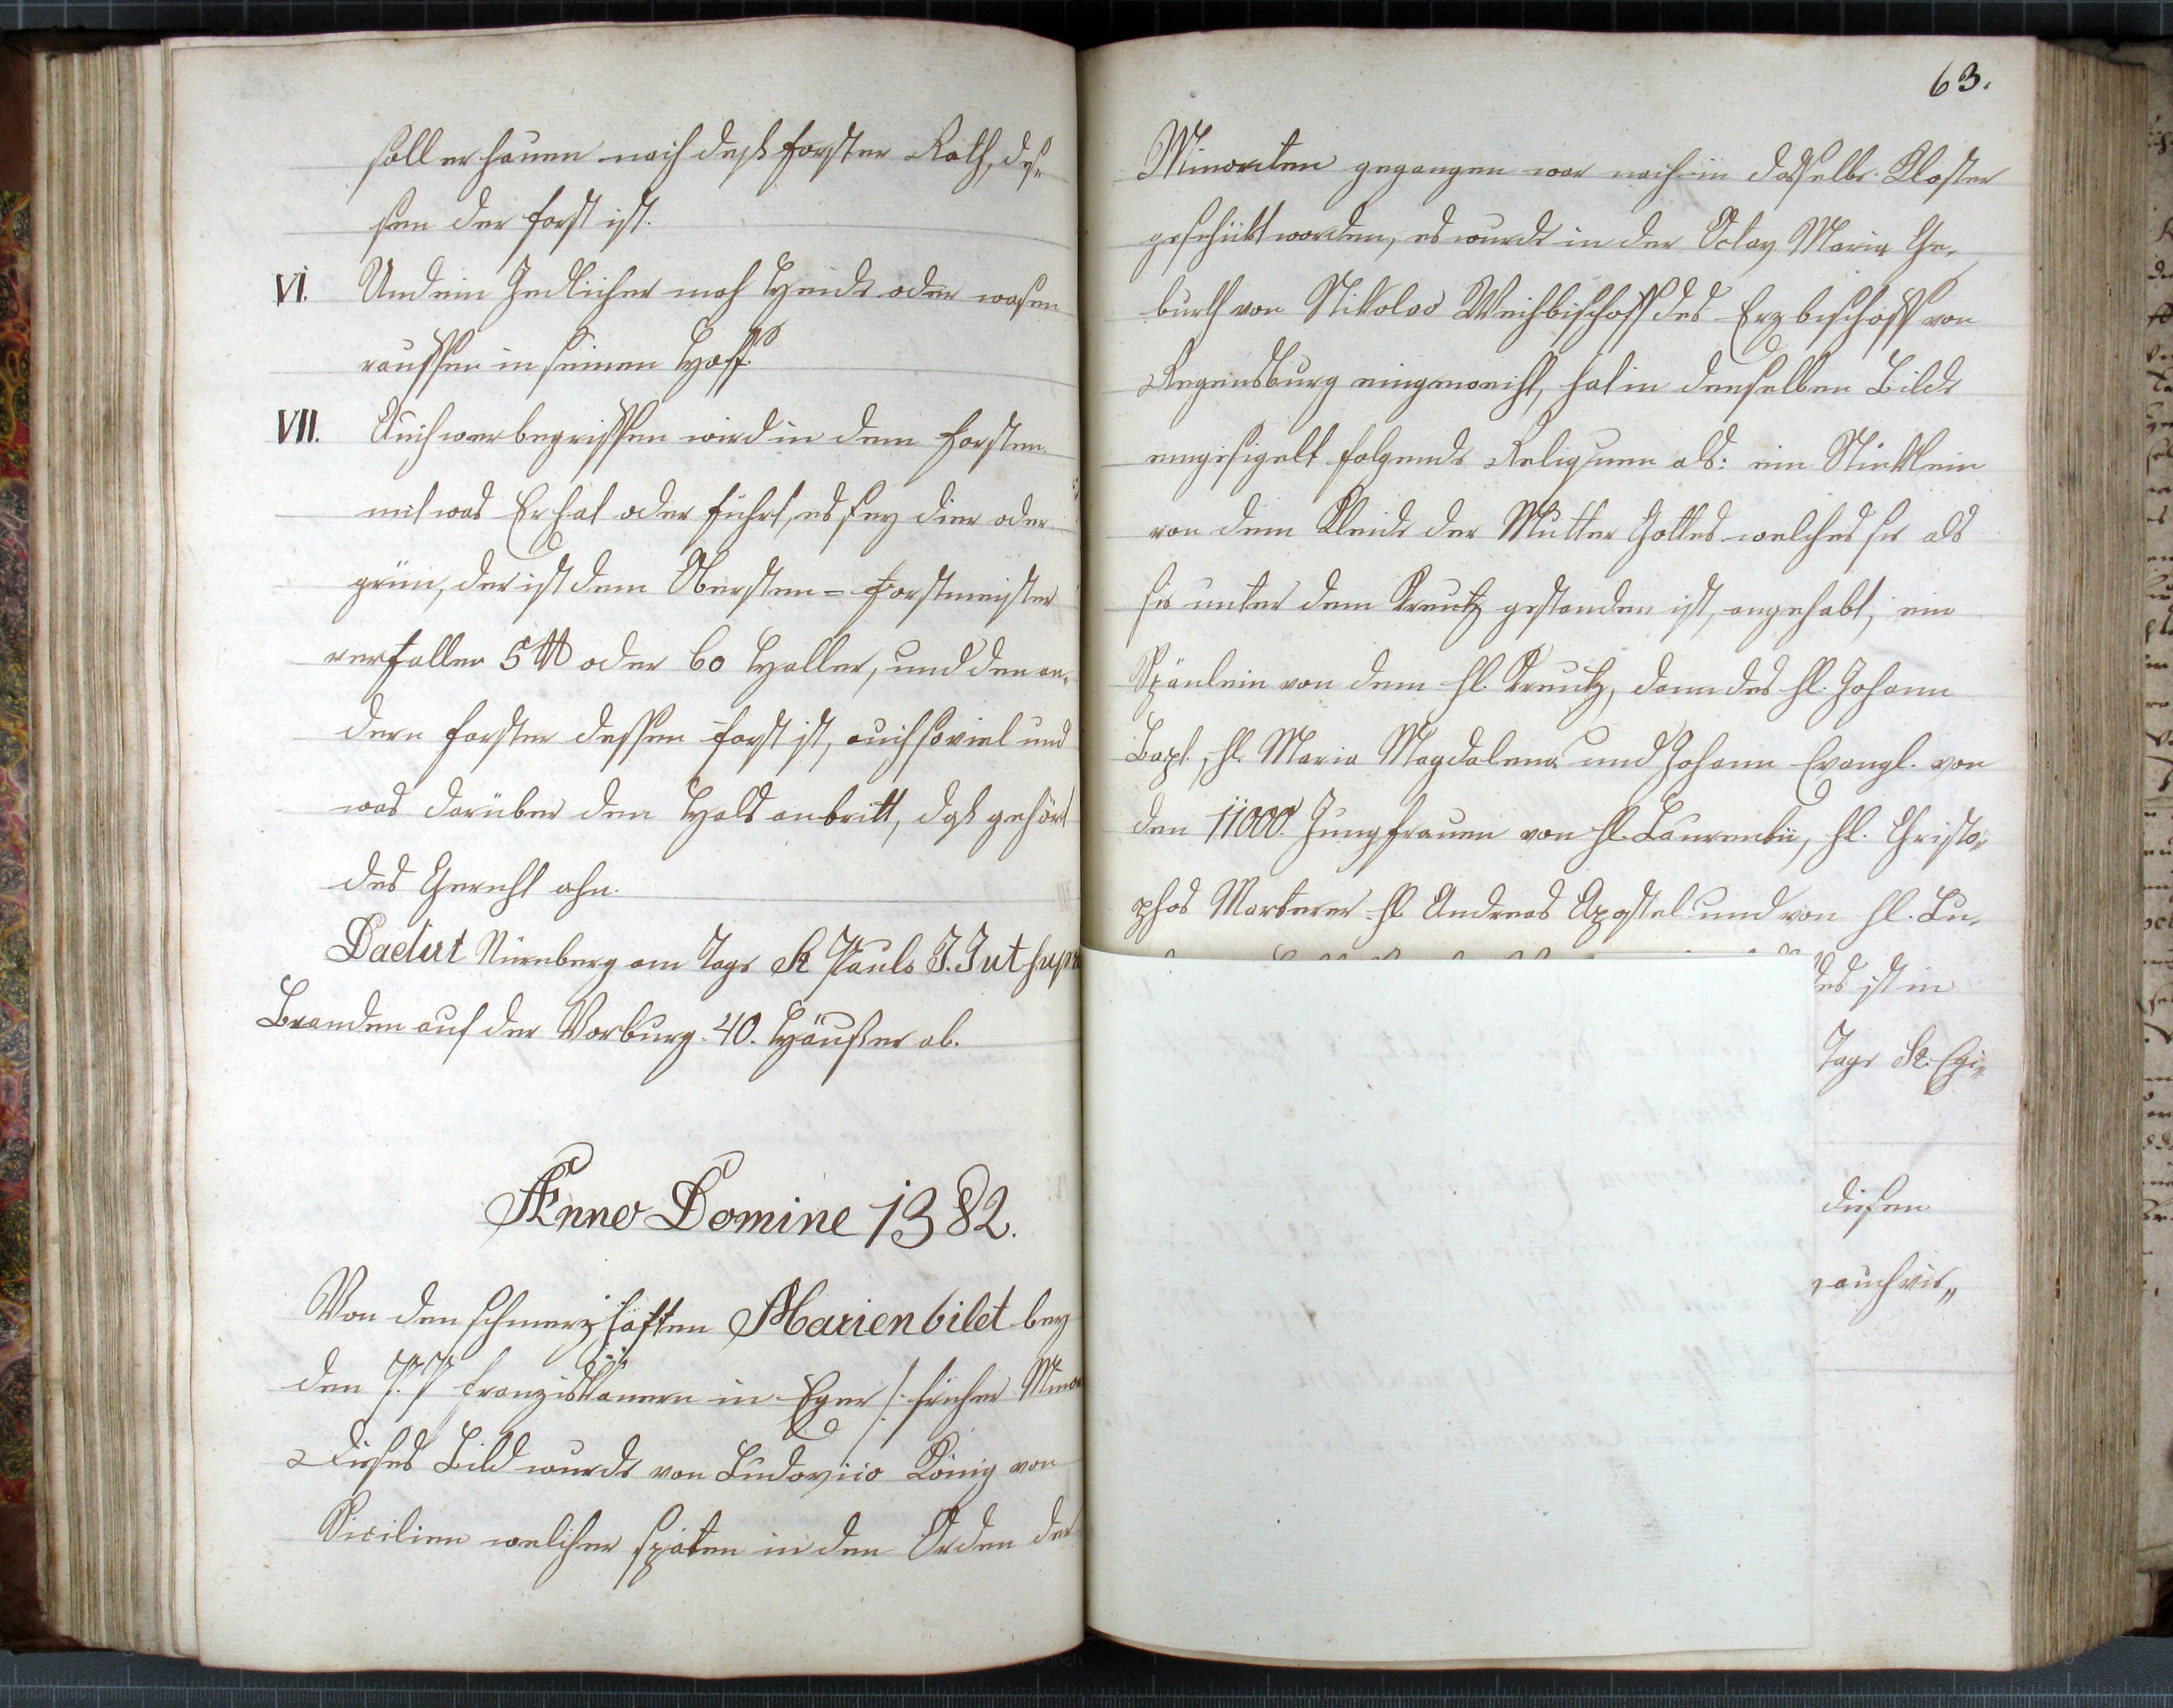 soll er hauen nach dess Forster Rath, des„
sen der Forst ist.
VI. Und ein Jedlicher mah Heide oder wasen
rauffen in seinen Hoff.
VII. Auch wer begriffen wird in dem Forsten
mit was Er hat oder führt, es sey dürr oder
grün, der ist dem Obersten=Forstmeister
verfallen 5 ℔ oder 60 Haller, und den an„
dern Forster dessen Forst ist, auch soviel und
was darüber den Hals anbritt, dass gehört
des Gericht ahn.
Dadut Nürnberg am Tage St Pauls J. Jut supra
Branden auf der Vorburg 40. Häußer ab.
Anno Domine 1382.
Von den schmerzhaften Marienbilet bey
den P.P Franziskanern in Eger /: früher Minor
Dieses Bild wurde von Ludovico König von
Sicilien welcher späten in den Orden der
63.
Minoriten gegangen war nach in dasselbe Kloster
geschickt worden, es wurde in der Octav Maria Ge„
burth von Nikolas Weihbischoff des Erzbischoff von
Regensburg eingeweiht, hat in denselben Bilde
eingesigelt folgende Reliquien als: ein Stücklein
von dem Kleide der Mutter Gottes welches sie als
sie unter dem Kreutz gestanden ist, angehabt, ein
Spänlein von dem hl. Kreutz, dann des hl. Johann
Bapt., hl. Maria Magdalena und Johann Evangl. von
den 11000. Jungfrauen von hl. Laurentii, hl. Christo„
phos Marterer hl. Andreas Apostel und von hl. Lu„
des ist in
Tage St. Egi„
diesen
auch vie„